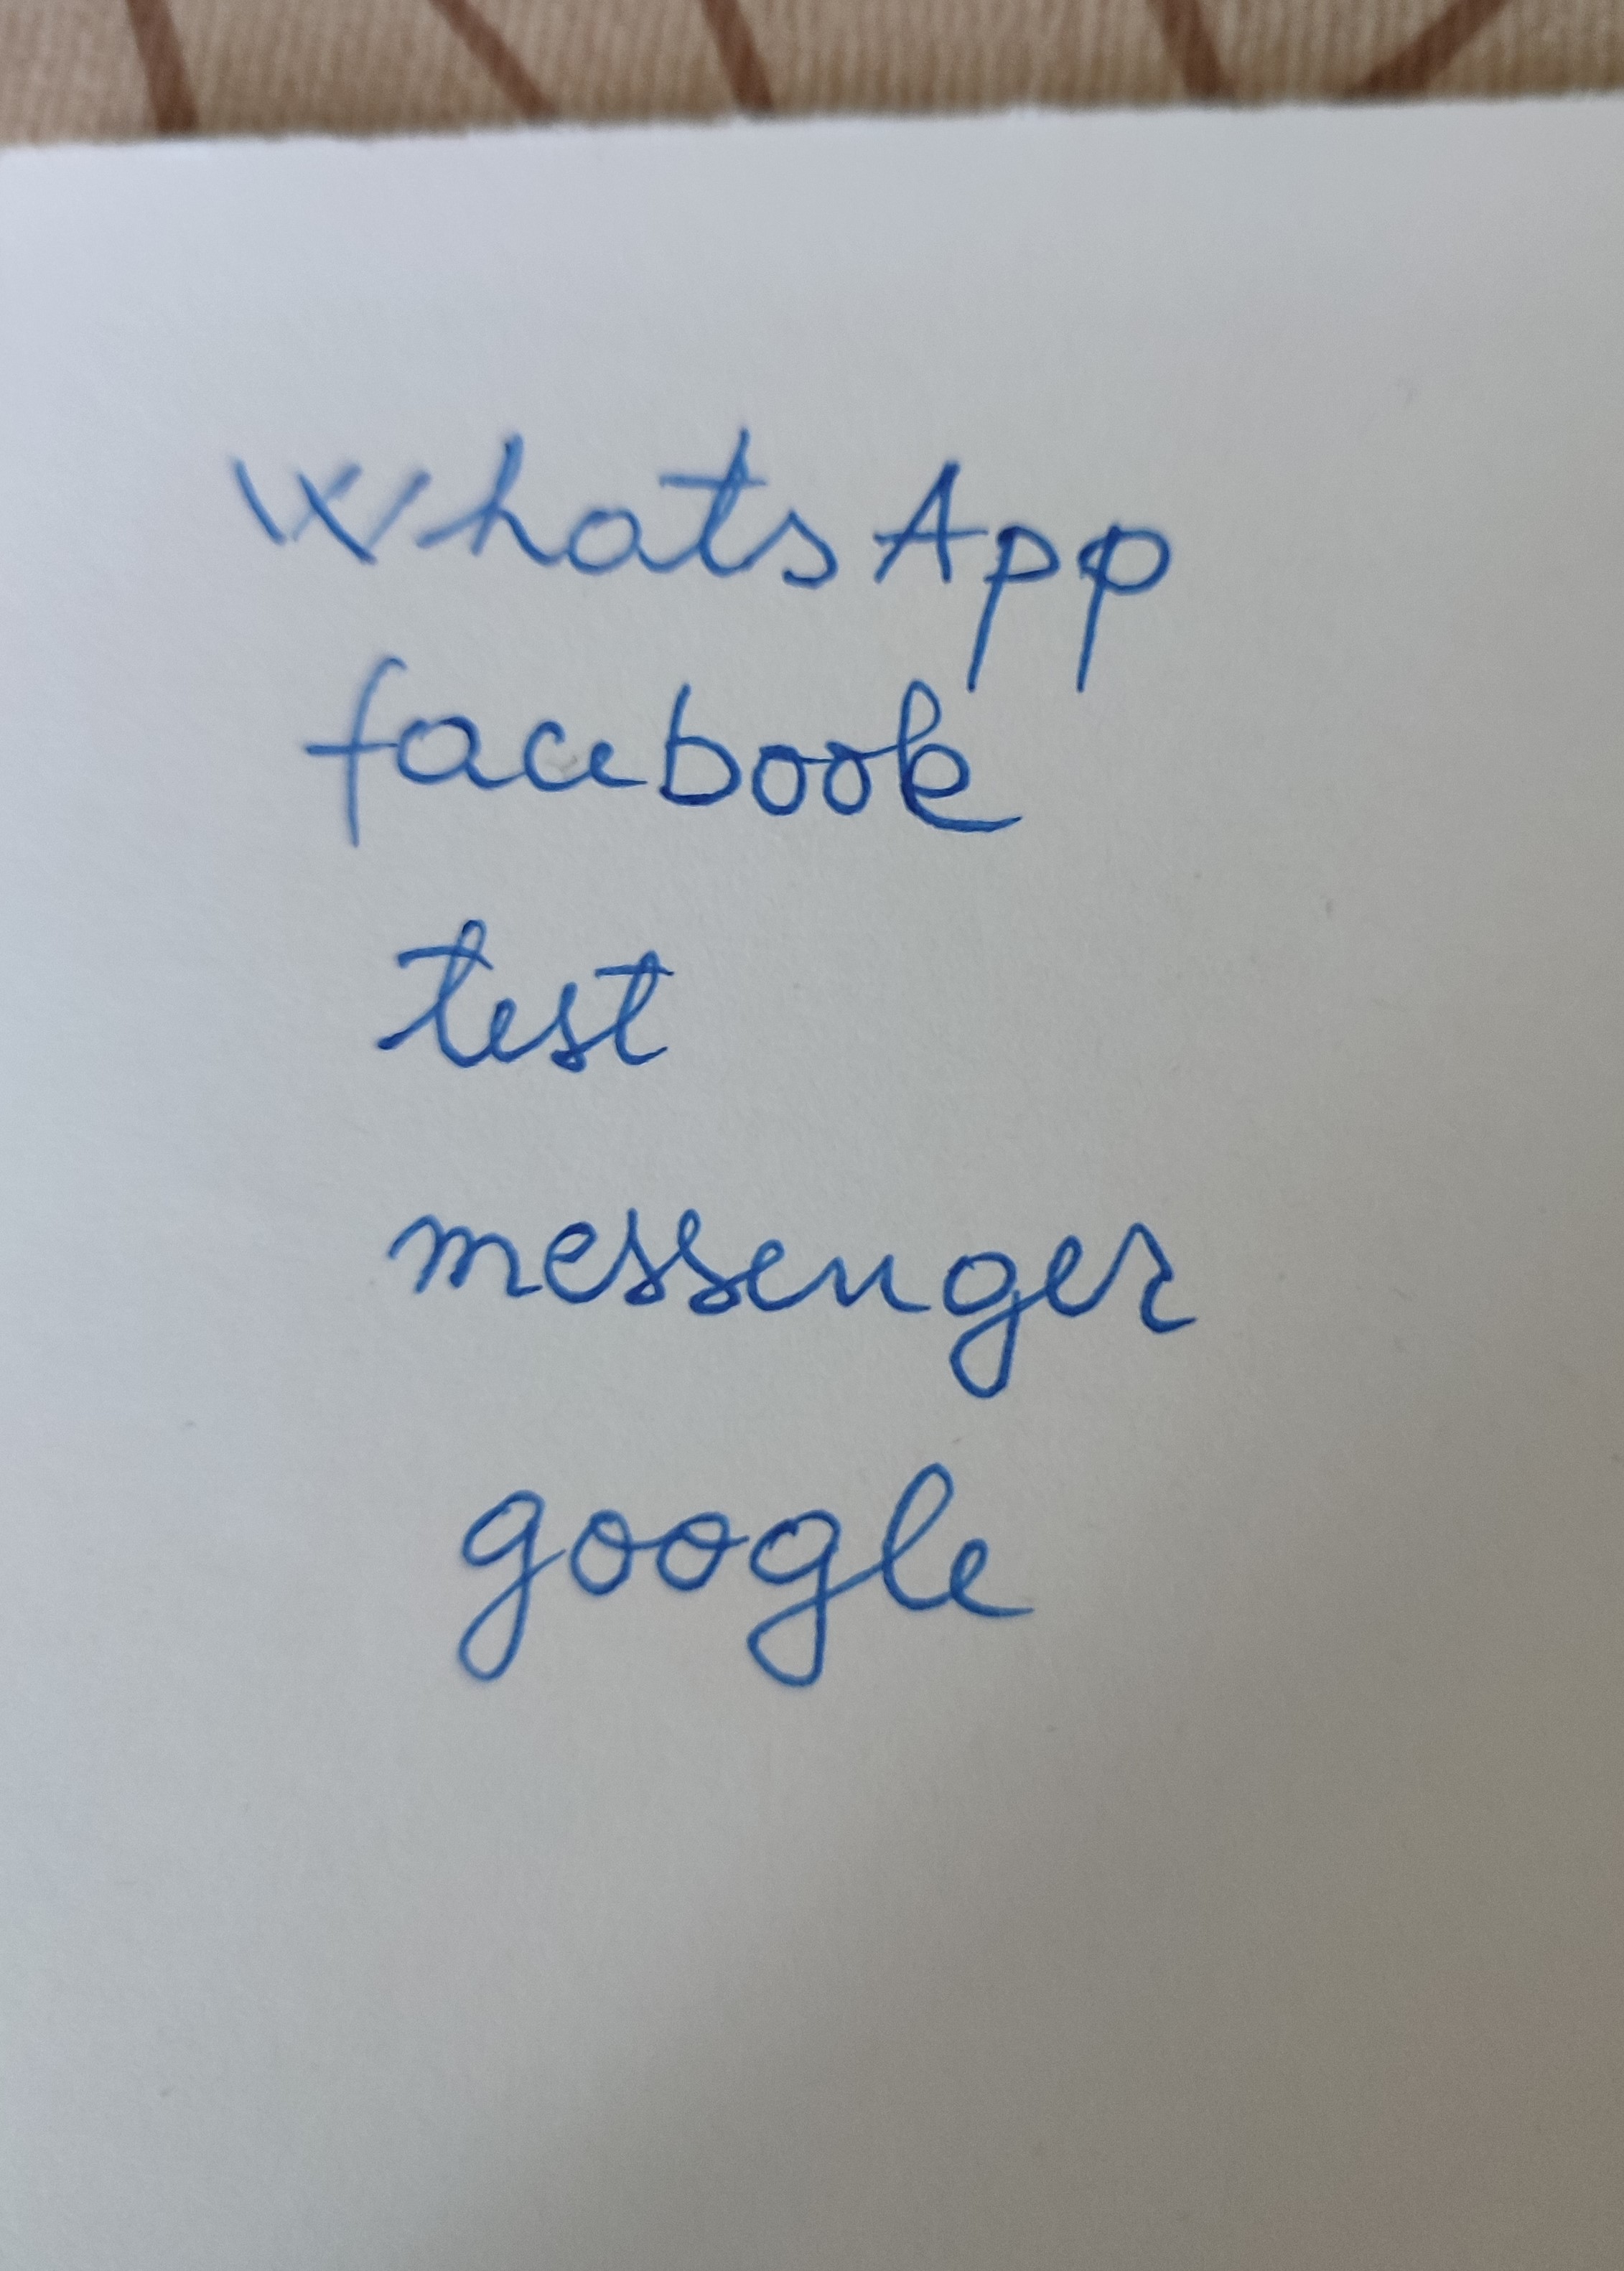 whatsApp
facebook
test
messenger
google